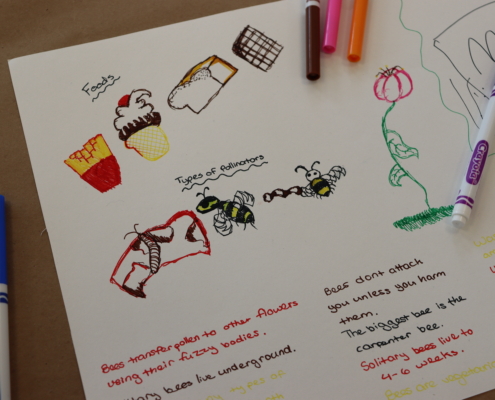 Foods
Types of Pollinators
Bees transfer pollen to other flowers
using their fuzzy bodies.
bees live underground.
types of
Bees dont attack
you unless you harm
them.
The biggest bee is the
carpenter bee.
Solitary bees live to
4-6 weeks.
Bees are vegetarian
Crayola